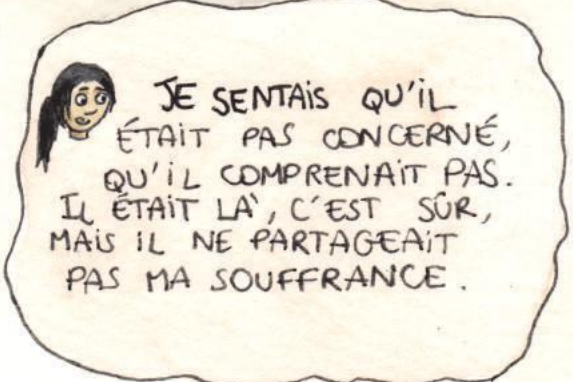 JE SENTAIS QU'IL
ÉTAIT PAS CONCERNÉ,
QU'IL COMPRENAIT PAS.
IL ÉTAIT LÀ, C'EST SÛR,
MAIS IL NE PARTAGEAIT
PAS MA SOUFFRANCE.